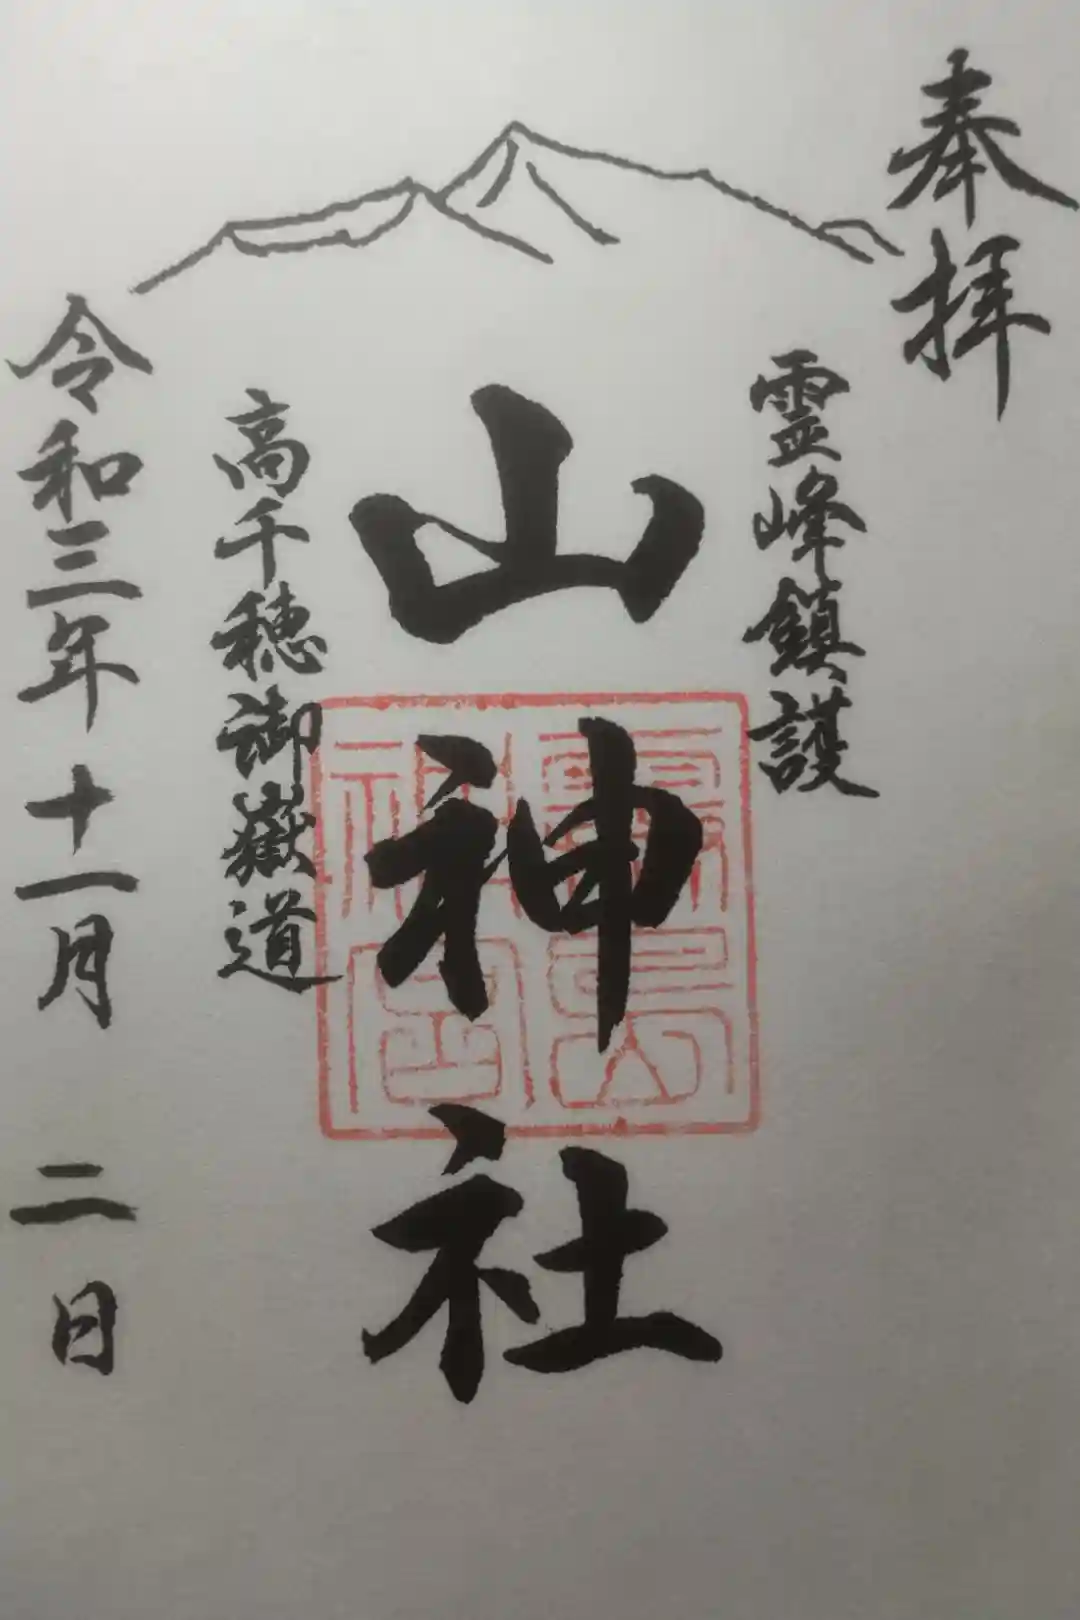 奉拝
霊峰鎮護
山神社
高千穂御嶽道
令和三年十一月 二日